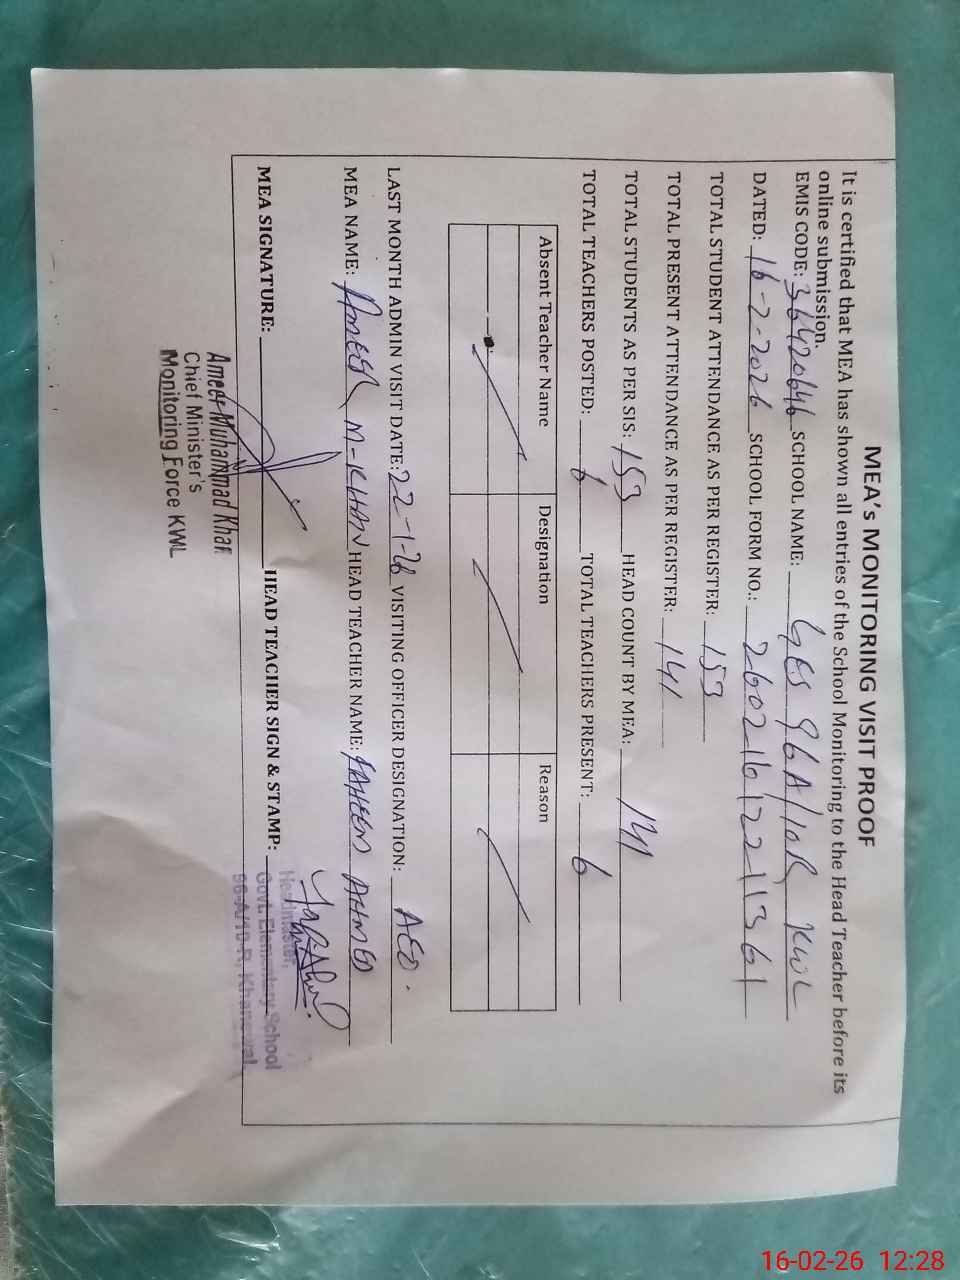 MEA's MONITORING VISIT PROOF
It is certified that MEA has shown all entries of the School Monitoring to the Head Teacher before its
online submission.
EMIS CODE: 36420646 SCHOOL NAME: GES 96A/10R KWL
DATED: 16-2-2026 SCHOOL FORM NO.: 26021612211361
TOTAL STUDENT ATTENDANCE AS PER REGISTER: 153
TOTAL PRESENT ATTENDANCE AS PER REGISTER: 141
TOTAL STUDENTS AS PER SIS: 153 HEAD COUNT BY MEA: 141
TOTAL TEACHERS POSTED: 6 TOTAL TEACHERS PRESENT: 6
Absent Teacher Name Designation Reason
LAST MONTH ADMIN VISIT DATE: 22-1-26 VISITING OFFICER DESIGNATION: AEO.
MEA NAME: AMEER M-KHAN HEAD TEACHER NAME: FAHEEM AHMED
MEA SIGNATURE: HEAD TEACHER SIGN & STAMP:
Headmaster,
Govt. Elementary School
96-A/10-R, Khanewal.
Ameer Muhammad Khan
Chief Minister's
Monitoring Force KWL
16-02-26 12:28